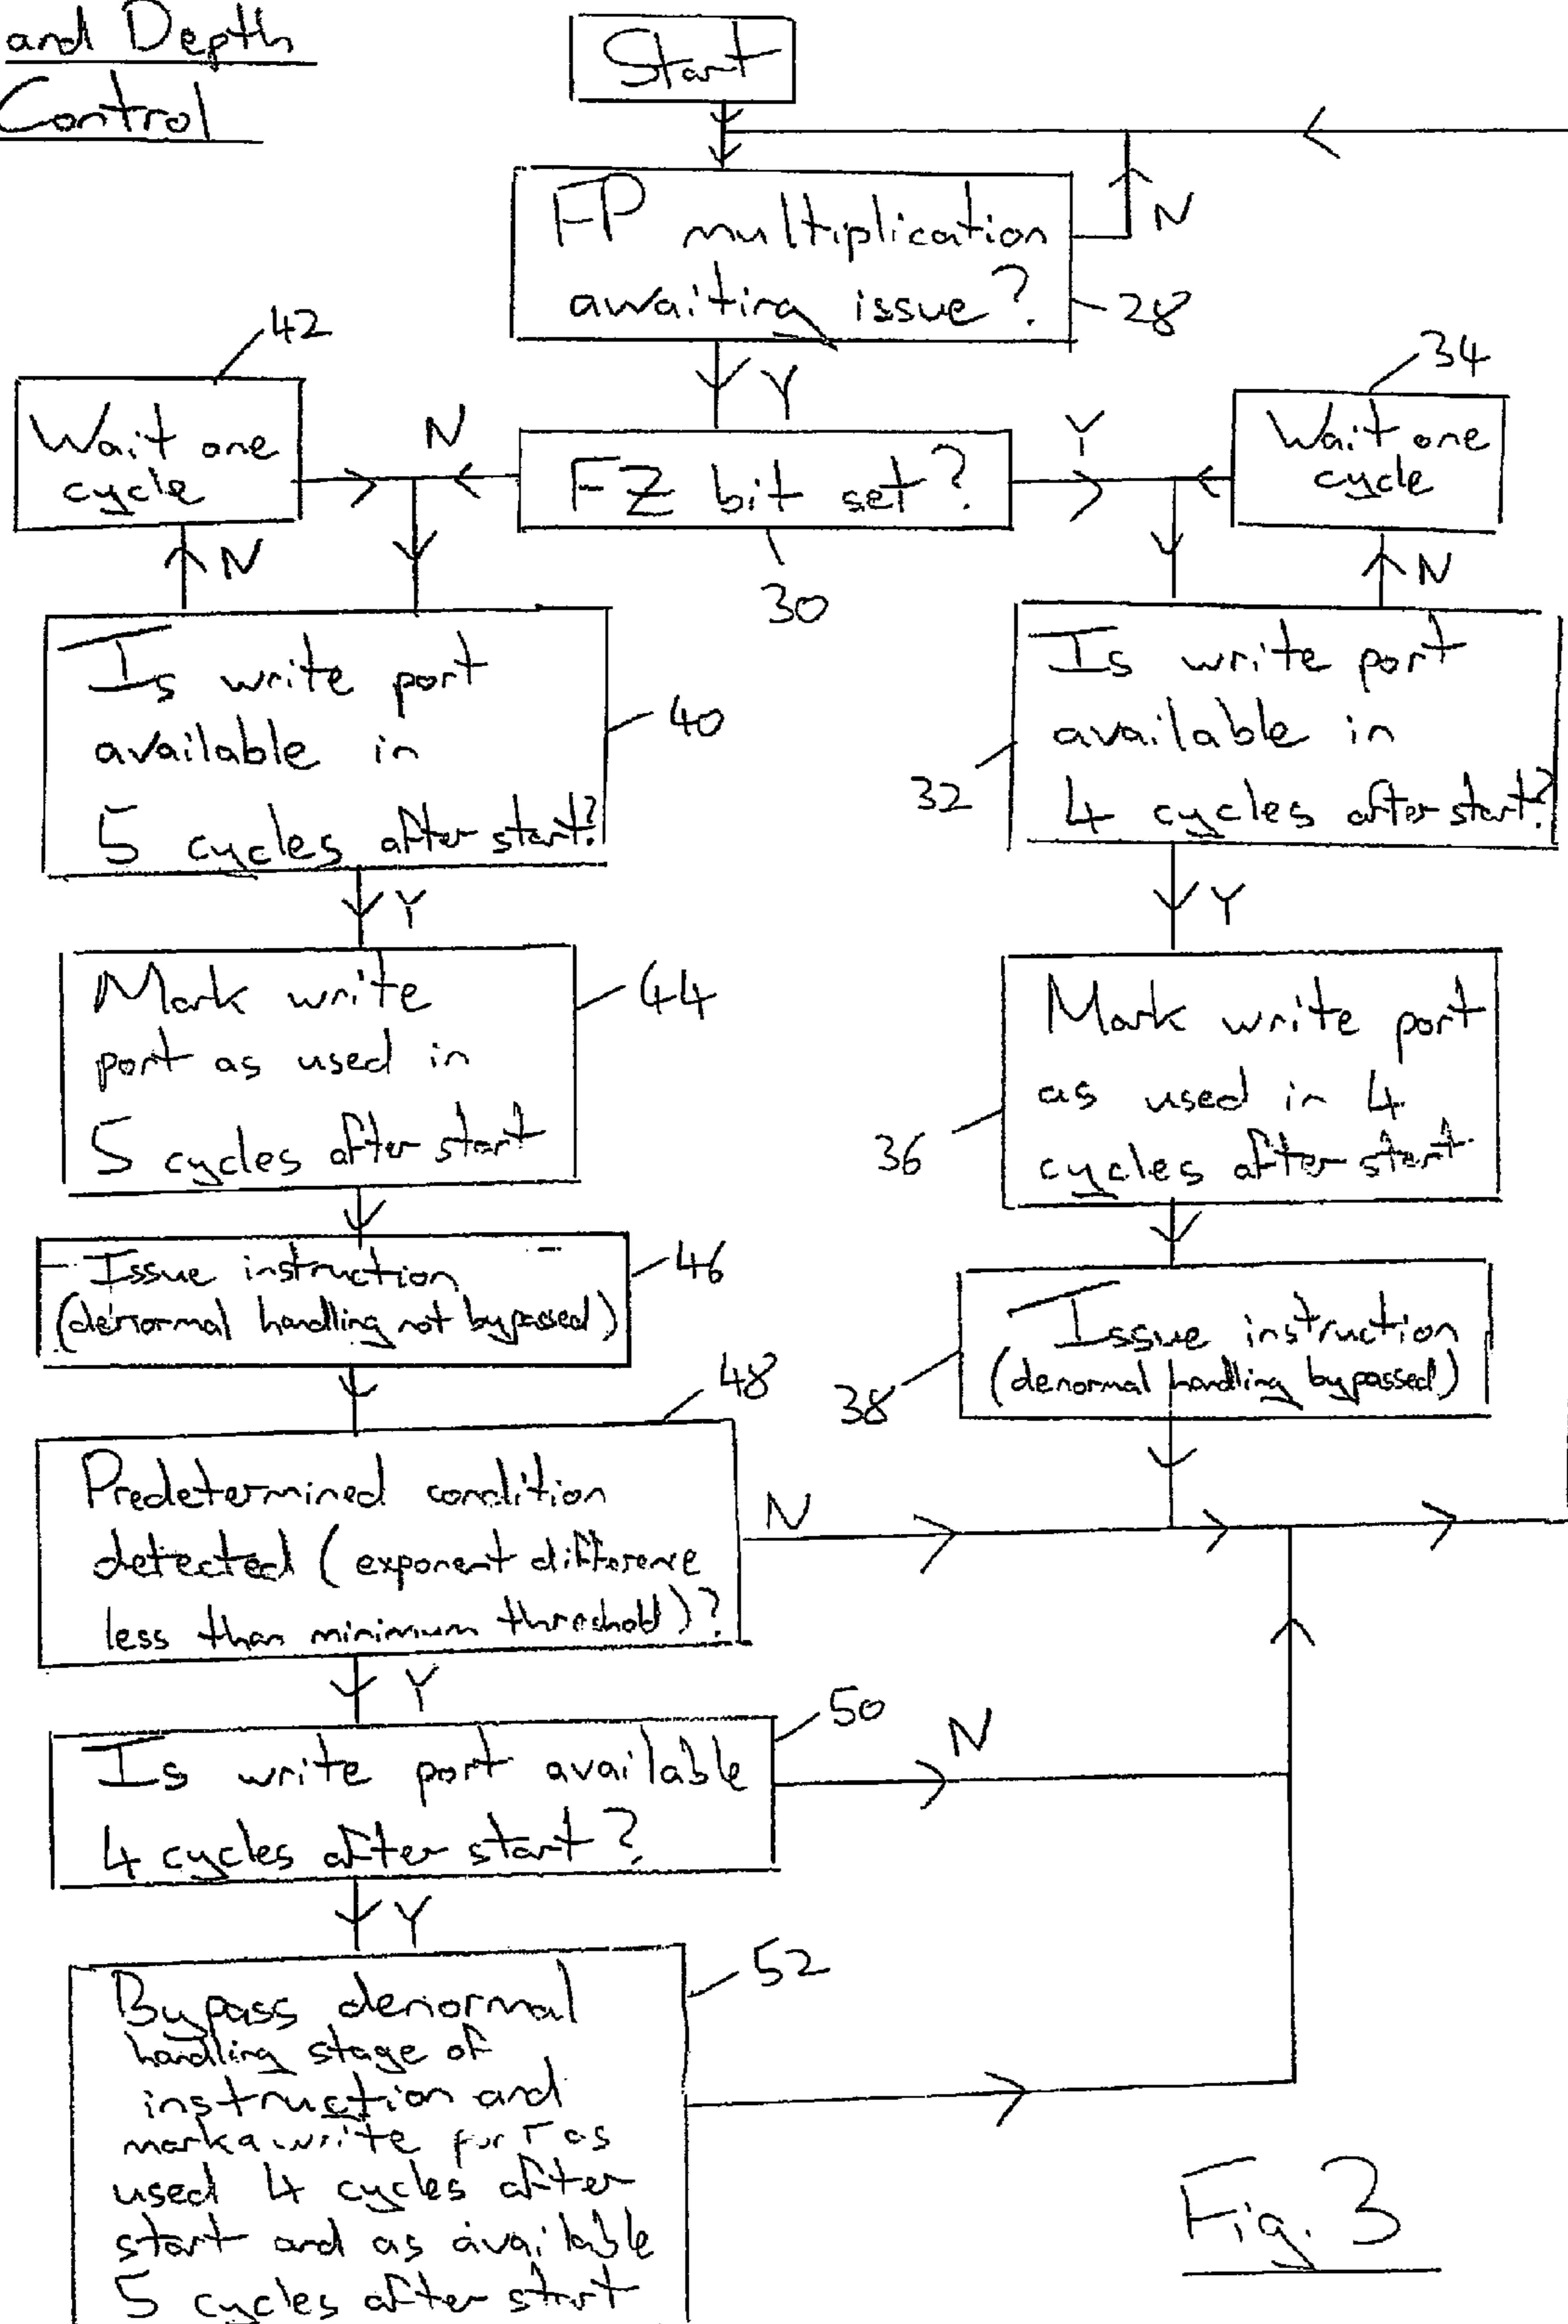 and Depth
Control
Start
FP multiplication
awaiting issue?
N
28
Y
42
34
Wait one
cycle
N
FZ bit set?
Y
Wait one
cycle
N
30
N
Is write port
available in
5 cycles after start?
40
Is write port
available in
4 cycles after start?
32
Y
Y
Mark write
port as used in
5 cycles after start
44
Mark write port
as used in 4
cycles after start
36
Issue instruction
(denormal handling not bypassed)
46
Issue instruction
(denormal handling bypassed)
38
48
Predetermined condition
detected (exponent difference
less than minimum threshold)?
N
Y
50
Is write port available
4 cycles after start?
N
Y
52
Bypass denormal
handling stage of
instruction and
mark a write port as
used 4 cycles after
start and as available
5 cycles after start
Fig. 3